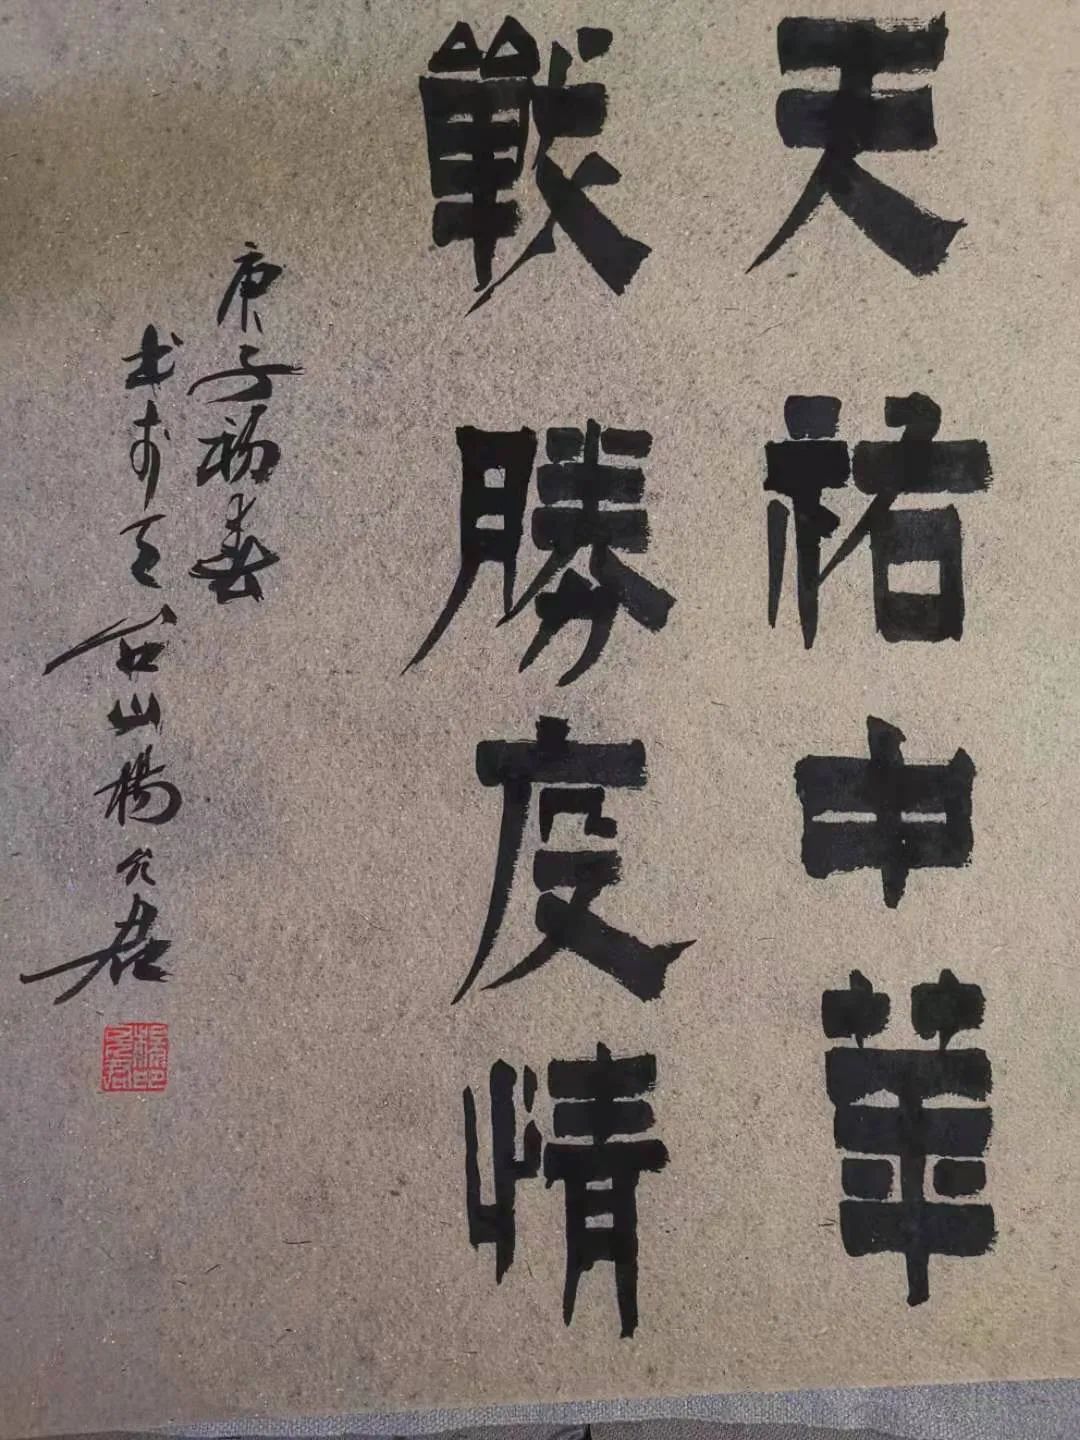 天祐中華
戰勝疫情
庚子初春
书於天台山楊君